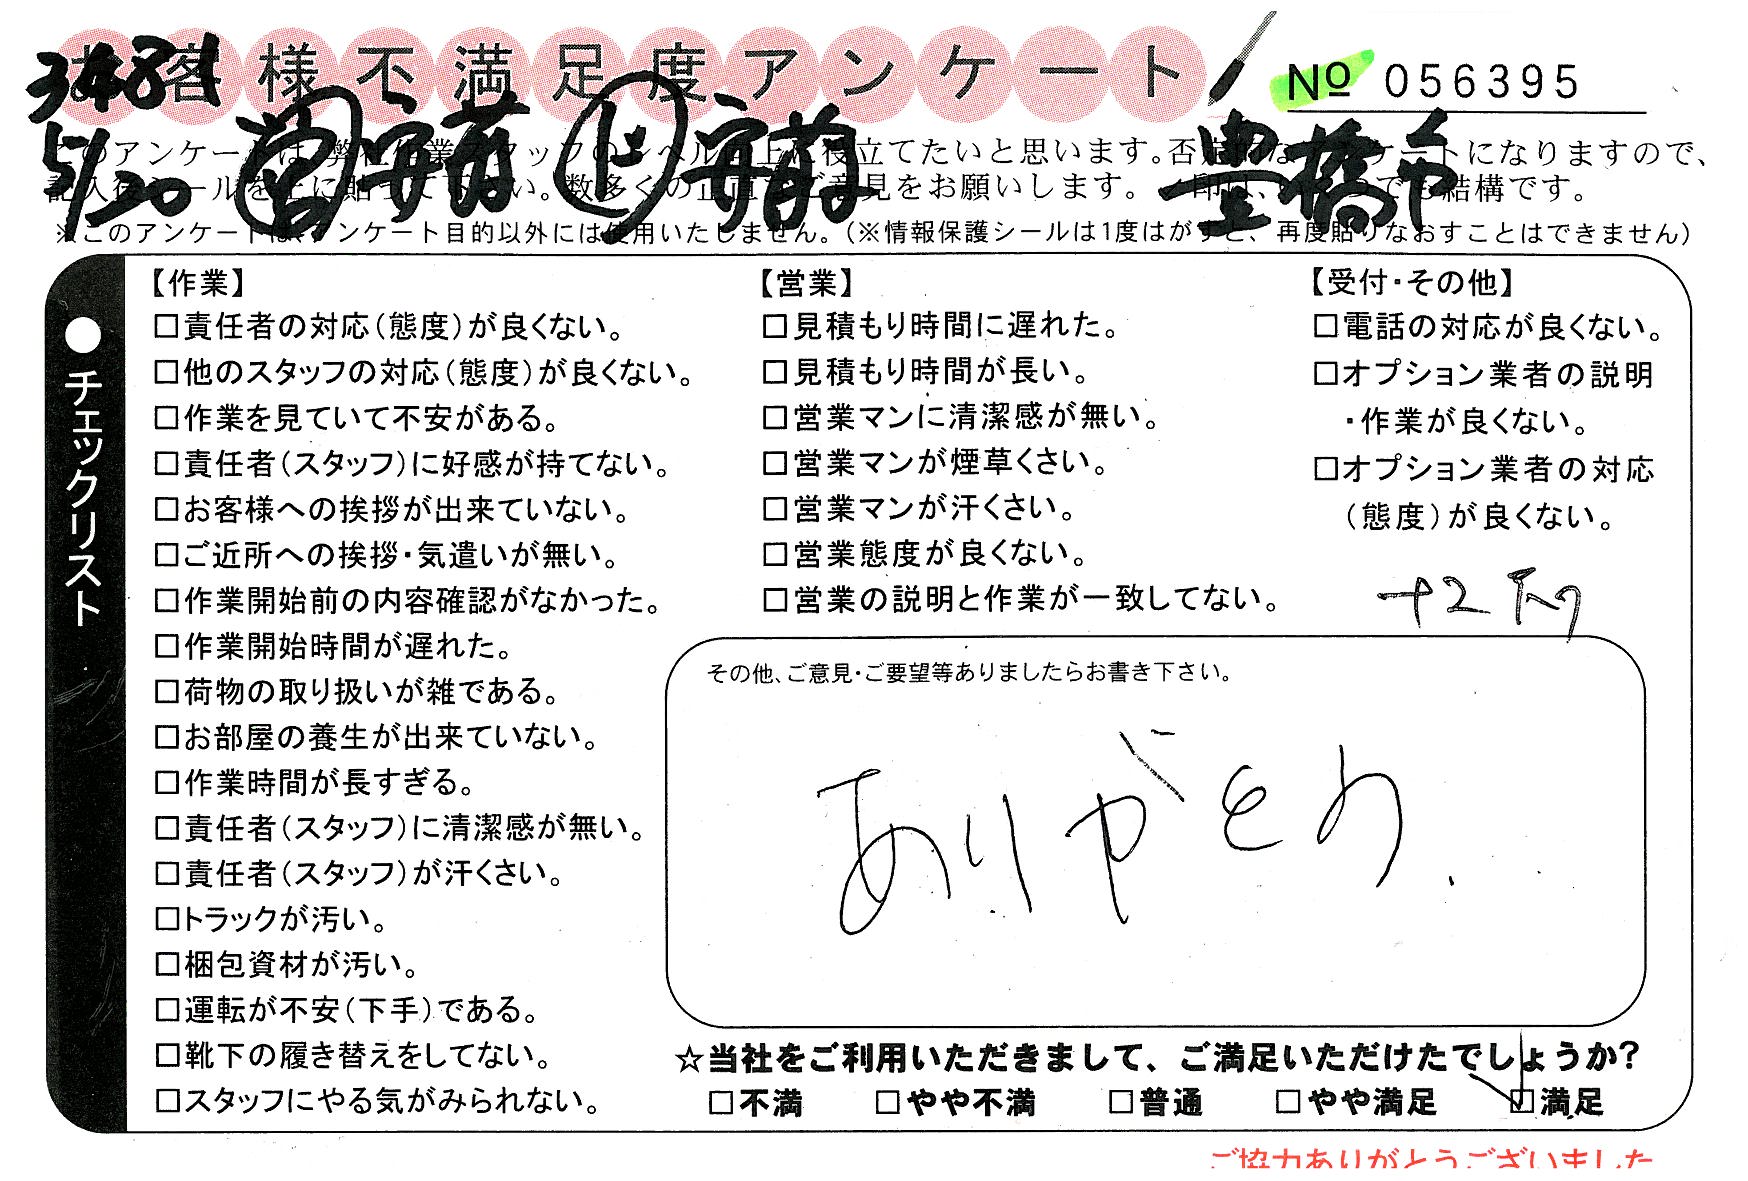 お客様不満足度アンケート
No 056395
3481
5/20 営 安前 作 安前 豊橋市
このアンケートは、弊社作業スタッフのレベル向上に役立てたいと思います。否定的なアンケートになりますので、
記入後シールを上に貼って下さい。数多くの正直なご意見をお願いします。
※このアンケートは、アンケート目的以外には使用いたしません。(※情報保護シールは1度はがすと、再度貼りなおすことはできません)
●チェックリスト
【作業】
□責任者の対応(態度)が良くない。
□他のスタッフの対応(態度)が良くない。
□作業を見ていて不安がある。
□責任者(スタッフ)に好感が持てない。
□お客様への挨拶が出来ていない。
□ご近所への挨拶・気遣いが無い。
□作業開始前の内容確認がなかった。
□作業開始時間が遅れた。
□荷物の取り扱いが雑である。
□お部屋の養生が出来ていない。
□作業時間が長すぎる。
□責任者(スタッフ)に清潔感が無い。
□責任者(スタッフ)が汗くさい。
□トラックが汚い。
□梱包資材が汚い。
□運転が不安(下手)である。
□靴下の履き替えをしてない。
□スタッフにやる気がみられない。
【営業】
□見積もり時間に遅れた。
□見積もり時間が長い。
□営業マンに清潔感が無い。
□営業マンが煙草くさい。
□営業マンが汗くさい。
□営業態度が良くない。
□営業の説明と作業が一致してない。
【受付・その他】
□電話の対応が良くない。
□オプション業者の説明
・作業が良くない。
□オプション業者の対応
(態度)が良くない。
その他、ご意見・ご要望等ありましたらお書き下さい。
ありがとう
☆当社をご利用いただきまして、ご満足いただけたでしょうか?
□不満 □やや不満 □普通 □やや満足 □満足
ご協力ありがとうございました